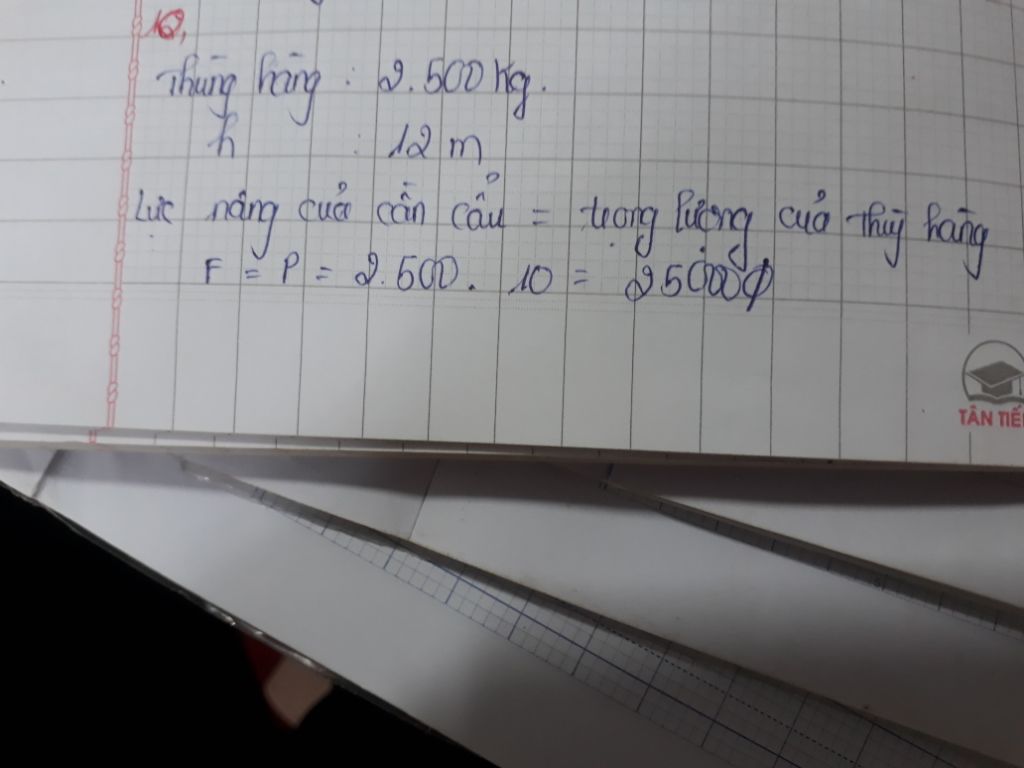 10,
Thùng hàng : 2.500 kg.
h : 12 m
Lực nâng của cần cẩu = trọng lượng của thùg hàng
F = P = 2.500. 10 = 25000
TÂN TIẾ